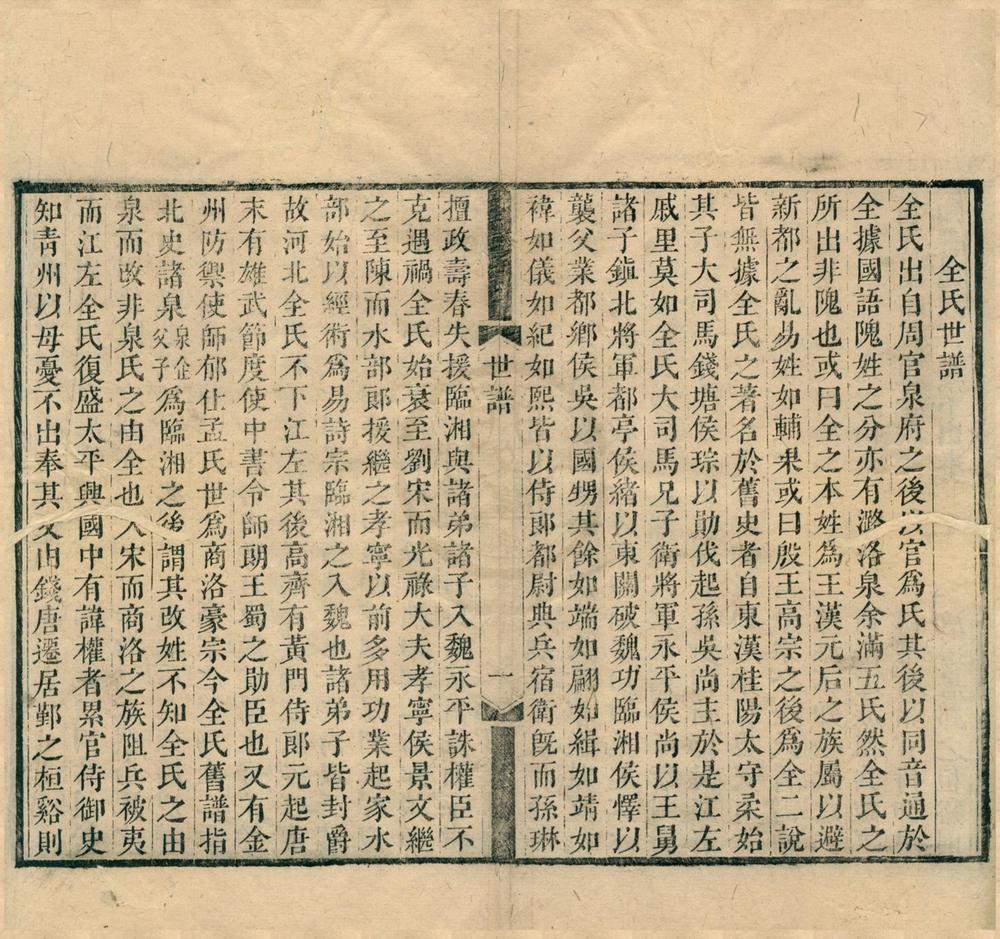 全氏世譜
全氏出自周官泉府之後以官爲氏其後以同音通於
全據國語隗姓之分亦有潞洛泉余滿五氏然全氏之
所出非隗也或曰全之本姓爲王漢元后之族屬以避
新都之亂易姓如輔果或曰殷王高宗之後爲全二說
皆無據全氏之著名於舊史者自東漢桂陽太守柔始
其子大司馬錢塘侯琮以勛伐起孫吳尚主於是江左
戚里莫如全氏大司馬兄子衛將軍永平侯尚以王舅
諸子鎭北將軍都亭侯緒以東關破魏功臨湘侯懌以
襲父業都鄉侯吳以國甥其餘如端如翩如緝如靖如
禕如儀如紀如熙皆以侍郞都尉典兵宿衛旣而孫琳
世譜
一
擅政壽春失援臨湘與諸弟諸子入魏永平誅權臣不
克遇禍全氏始衰至劉宋而光祿大夫孝寧侯景文繼
之至陳而水部郞援繼之孝寧以前多用功業起家水
部始以經術爲易詩宗臨湘之入魏也諸弟子皆封爵
故河北全氏不下江左其後高齊有黃門侍郞元起唐
末有雄武節度使中書令師朗王蜀之勛臣也又有金
州防禦使師郁仕孟氏世爲商洛豪宗今全氏舊譜指
北史諸泉泉企父子爲臨湘之後謂其改姓不知全氏之由
泉而改非泉氏之由全也入宋而商洛之族阻兵被夷
而江左全氏復盛太平興國中有諱權者累官侍御史
知靑州以母憂不出奉其父由錢唐遷居鄞之桓谿則